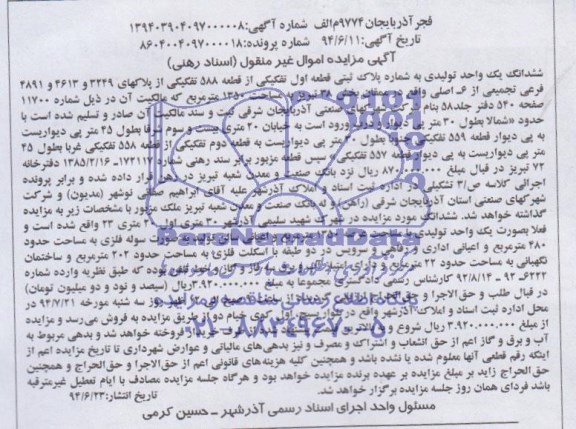 فجر آذربایجان ۹۷۷۴م‌الف شماره آگهی: ۱۳۹۴۰۳۹۰۴۰۹۷۰۰۰۰۰۸
تاریخ آگهی: ۹۴/۶/۱۱ شماره پرونده: ۸۶۰۴۰۰۴۰۹۷۰۰۰۰۱۸
آگهی مزایده اموال غیر منقول (اسناد رهنی)
ششدانگ یک واحد تولیدی به شماره پلاک ثبتی قطعه اول تفکیکی از قطعه ۵۸۸ تفکیکی از پلاکهای ۳۲۴۹ و ۴۶۱۳ و ۴۸۹۱
فرعی تجمیعی از ۶ـ اصلی واقع در دهقان بخش ۲۸ تبریز به مساحت ۱۳۵۰ مترمربع که مالکیت آن در ذیل شماره ۱۱۷۰۰
صفحه ۵۴۰ دفتر جلد ۵۸ بنام شرکت شهرکهای صنعتی آذربایجان شرقی ثبت و سند مالکیت آن صادر و تسلیم شده است با
حدود «شمالا بطول ۳۰ متر پی دیوار و درب ورود است به خیابان ۲۰ متری بیست و سوم شرقا بطول ۴۵ متر پی دیواریست
به پی دیوار قطعه ۵۵۹ تفکیکی جنوبا بطول ۳۰ متر پی دیواریست به قطعه دوم تفکیکی از قطعه ۵۵۸ تفکیکی غربا بطول ۴۵
متر پی دیواریست به پی دیوار قطعه ۵۵۷ تفکیکی» سپس قطعه مزبور برابر سند رهنی شماره ۱۷۲۱۱۷ـ ۱۳۸۵/۲/۱۶ دفترخانه
۷۲ تبریز در قبال مبلغ ریال نزد بانک صنعت و معدن شعبه تبریز در رهن قرار داده شده و برابر پرونده
اجرائی کلاسه ص/۳ تشکیلی در اداره ثبت اسناد و املاک آذرشهر علیه آقای ابراهیم صنعتی نوشهر (مدیون) و شرکت
شهرکهای صنعتی استان آذربایجان شرقی (راهن) و له بانک صنعت و معدن شعبه تبریز ملک مزبور با مشخصات زیر به مزایده
گذاشته خواهد شد. ششدانگ مورد مزایده در شهرک شهید سلیمی آذرشهر ۳۰ متری اول ۲۰ متری ۲۳ واقع شده است و
فعلا بصورت یک واحد تولیدی با مساحت ۱۳۵۰ مترمربع و اعیانی سالن تولیدی بصورت سوله فلزی به مساحت حدود
۴۸۰ مترمربع و اعیانی اداری و رفاهی و سرویس در دو طبقه با اسکلت فلزی به مساحت حدود ۲۰۲ مترمربع و ساختمان
نگهبانی به مساحت حدود ۲۲ مترمربع و دارای امتیاز آب و برق سه فاز و گاز و خط تلفن بوده که طبق نظریه وارده شماره
۶۲۲۲ـ ۹۲ـ ۹۲/۸/۱۴ کارشناس رسمی دادگستری مجموعا به مبلغ ۳.۹۲۰.۰۰۰.۰۰۰ریال (سیصد و نود و دو میلیون تومان)
در قبال طلب و حق الاجرا و حق الحراج و از ساعت ۹ صبح الی ۱۲ ظهر روز سه شنبه مورخه ۹۴/۷/۲۱ در
محل اداره ثبت اسناد و املاک آذرشهر واقع در بلوار بسیج، اول کوی خیام دو از طریق مزایده به فروش می‌رسد و مزایده
از مبلغ ۳.۹۲۰.۰۰۰.۰۰۰ ریال شروع و به فروخته خواهد شد و بدهی مربوط به
آب و برق و گاز اعم از حق انشعاب و اشتراک و مصرف و نیز بدهی‌های مالیاتی و عوارض شهرداری تا تاریخ مزایده اعم از
اینکه رقم قطعی آنها معلوم شده یا نشده باشد و همچنین کلیه هزینه‌های قانونی اعم از حق‌الاجرا و حق‌الحراج و همچنین
حق الحراج زاید بر مبلغ مزایده بر عهده برنده مزایده خواهد بود و هرگاه جلسه مزایده مصادف با ایام تعطیل غیرمترقبه
باشد فردای همان روز جلسه مزایده برگزار خواهد شد. تاریخ انتشار: ۹۴/۶/۲۳
مسئول واحد اجرای اسناد رسمی آذرشهر ـ حسین کرمی
ParsNamadData
پایگاه اطلاع رسانی مناقصه و مزایده
۰۲۱-۸۸۳۴۹۶۷۰-۵